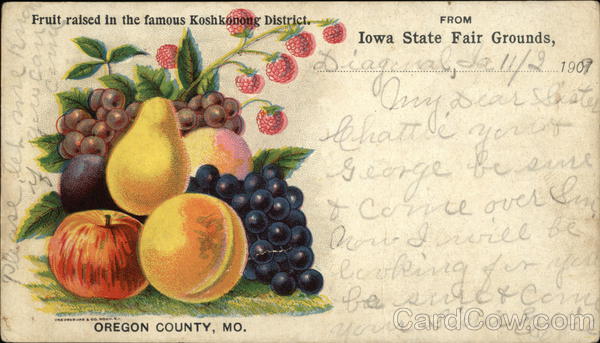 Fruit raised in the famous Koshkonong District.
FROM
Iowa State Fair Grounds,
Diagonal, Ia 11/2 1907
My Dear Sister
Chattie you &
George be sure
& come over Sun
now I will be
looking for you
be sure & come
OREGON COUNTY, MO.
Please let me know
if you come
CardCow.com